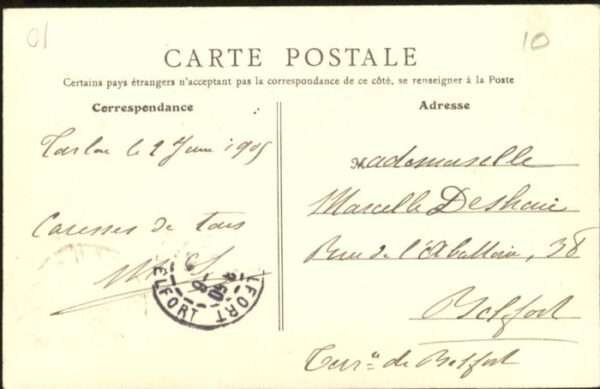 01
10
CARTE POSTALE
Certains pays étrangers n'acceptant pas la correspondance de ce côté, se renseigner à la Poste
Correspondance
le 2 Juin 1905
Caresses de tous
Adresse
Mademoiselle
Marcelle Deshaie
Rue de l'Abattoir, 38
Belfort
Terr.re de Belfort
BELFORT
BELFORT